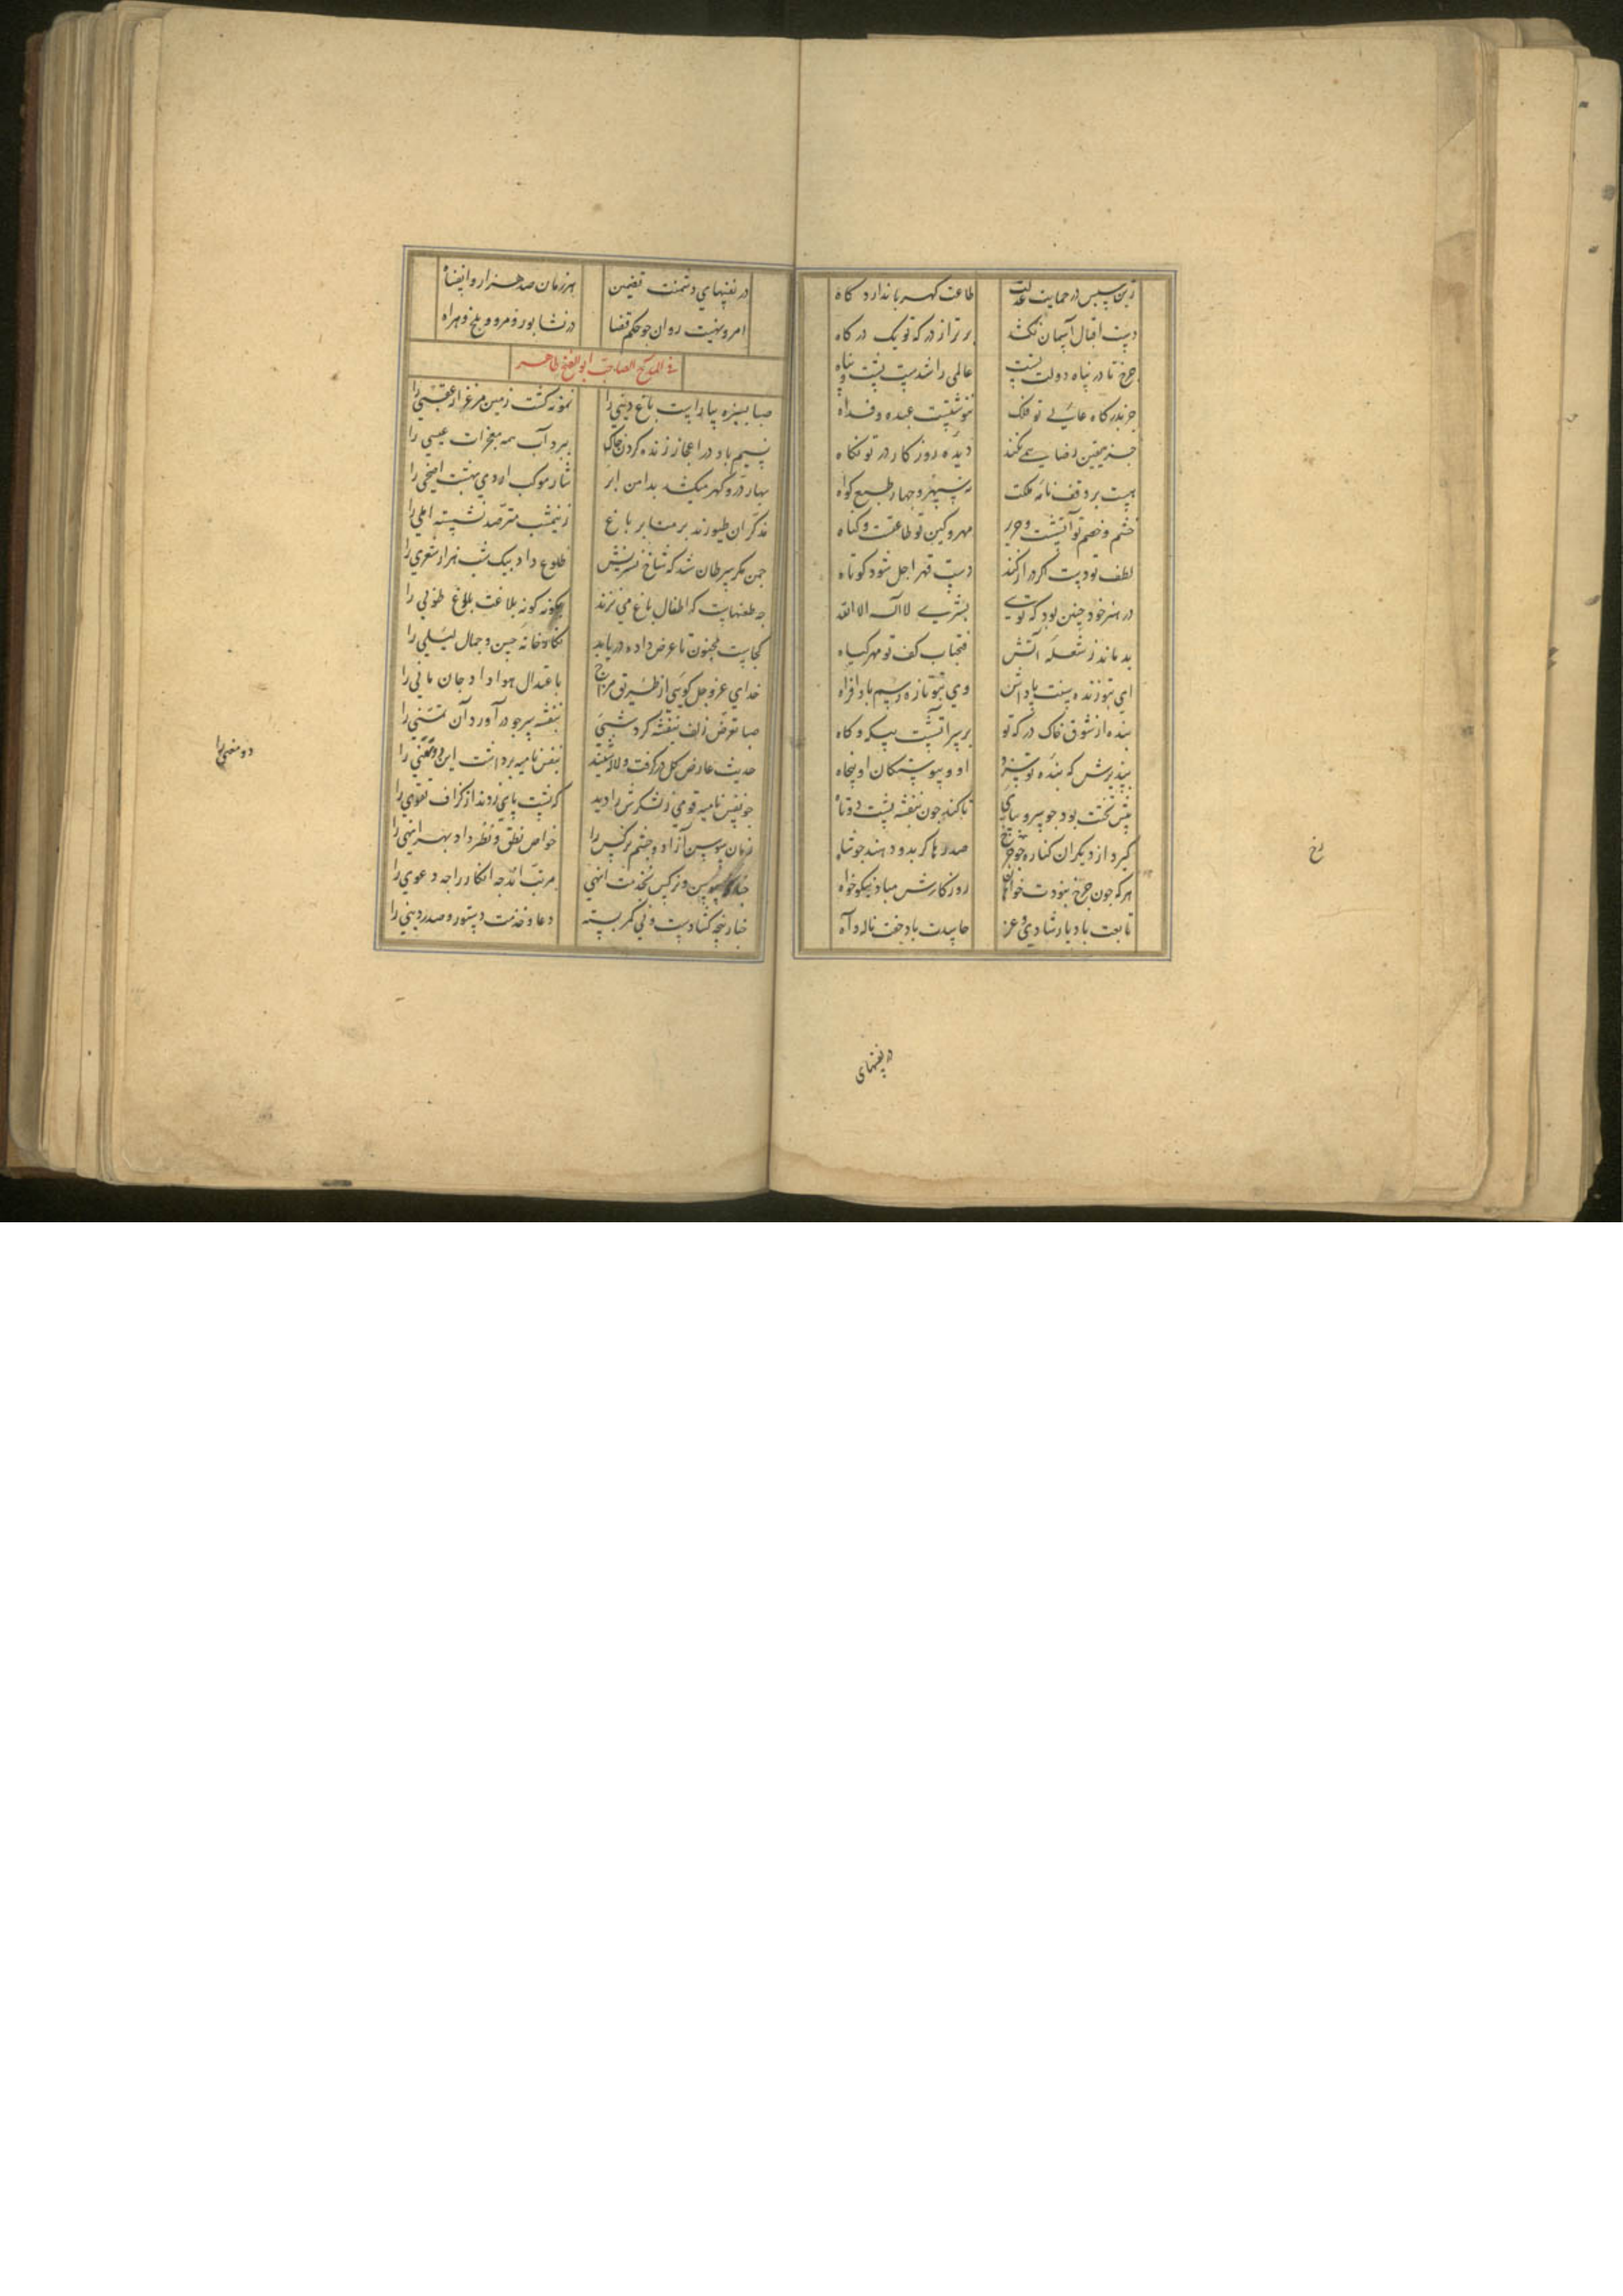 زین سپس در حمایت عدلت طاعت کهربا ندارد کاه
دست اقبال آسمان نکشد برتر از درکه تو یک درکاه
چرخ تا در پناه دولت تست عالمی را شدست پشت و پناه
جز بدرکاه عالی تو فلک ننوشتست عبده و فداه
جز بعین رضا همی نکند دیده روزکار در تو نکاه
هست بر وقف نامه ملکت نه سپهر و جهار طبع کواه
خشم و خصم تو آتشست و حریر مهر و کین تو طاعتست و کناه
لطف تو دست اکر دراز کند دست قهر اجل شود کوتاه
در هنر خود چنین بود که تویی بشری لا اله الا الله
بدماند ز شعله آتش فتحباب کف تو مهر کیاه
ای بتو زنده سنت پاداش وی بتو تازه رسم بادافراه
بنده از شوق خاک درکه تو بر سر آتشست بیکه و کاه
بپذیرش که بنده تو سزد او و پیوستکان او پنجاه
پیش تختت بود جو سرو بپای تا کند چون بنفشه پشت دوتاه
کیرد از دیکران کناره جو رخ صدرها کر بدو دهند جو شاه
هرکه جون جرخ نبودت خواهان روزکارش مباد نیکوخواه
تابعت باد یار شادی و عز حاسدت باد جفت ناله و آه
رخ
در نفسهای
در نفسهای دشمنت تضمین هر زمان صد هزار وا ایضاه
امر و نهیت روان جو حکم قضا در نشابور و مرو و بلخ و هراه
فی المدح الصاحب ابو الفتح طاهر
صبا بسبزه بیاراست باغ دنیی را نمونه کشت زمین مرغزار عقبی را
نسیم باد در اعجاز زنده کردن خاک ببرد آب همه معجزات عیسی را
بهار در و کهر میکشد بدامن ابر نثار موکب اردی بهشت اضحی را
مذکران طیورند بر منابر باغ ز نیمشب مترصد نشسته املی را
جمن مکر سرطان شد که شاخ نسرینش طلوع داد بیک شب هزار شعری را
چه طعنهاست که اطفال باغ می نزند بکونه کونه بلاغت بلوغ طوبی را
کجاست مجنون تا عرض داده دریابد نکارخانه حسن و جمال لیلی را
خدای عز و جل کویی از طریق مزاج باعتدال هوا داد جان مانی را
صبا تعرض زلف بنفشه کرد شبی بنفشه سر جو در آورد آن تمنی را
حدیث عارض کل درکرفت و لاله شنید بنفس نامیه برداشت این دو معنی را
جو نفس نامیه قومی ز لشکرش را دید که پشت پای زدند از کزاف تقوی را
زبان سوسن آزاد و چشم نرکس را خواص نطق و نظر داد بهر انهی را
جنانکه سوسن و نرکس بخدمت انهی مرتب اند جه انکار را جه دعوی را
چنار پنجه کشادست و نی کمر بسته دعا و خدمت دستور و صدر دنیی را
دو معنی را